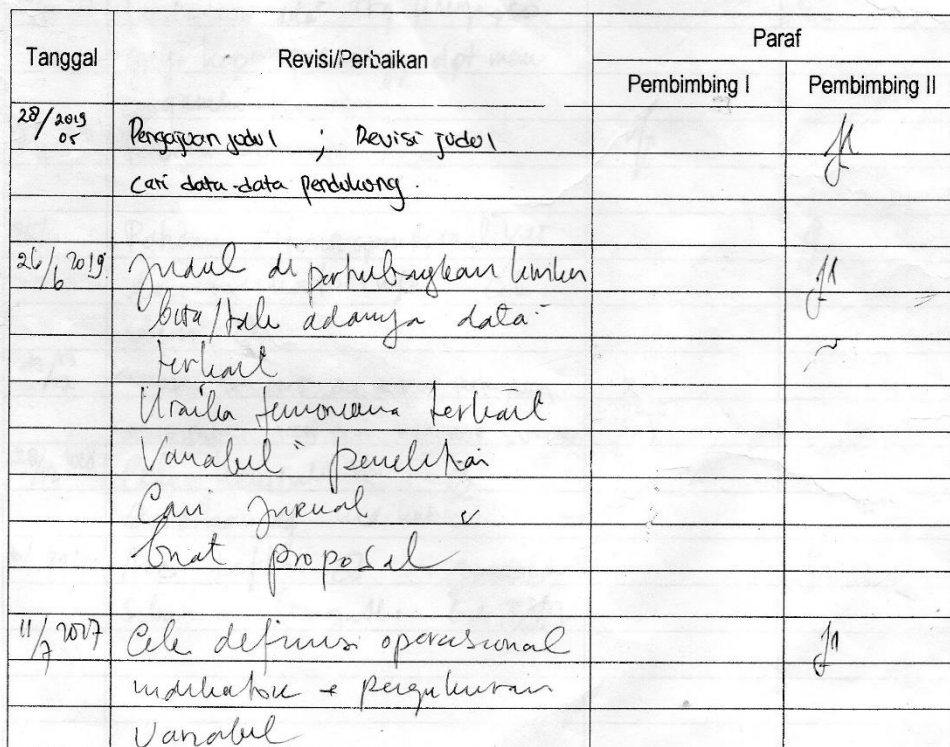 Tanggal
Revisi/Perbaikan
Paraf
Pembimbing I
Pembimbing II
28/2019
05
Pengajuan judul ; Revisi judul
Cari data-data pendukung.
26/6 2019
Judul di pertimbangkan
data"
terkait
Uraikan fenomena terkait
Variabel" penelitian
Cari Jurnal
buat proposal
11/7
Cek definisi operasional
indikator + pengukuran
Variabel